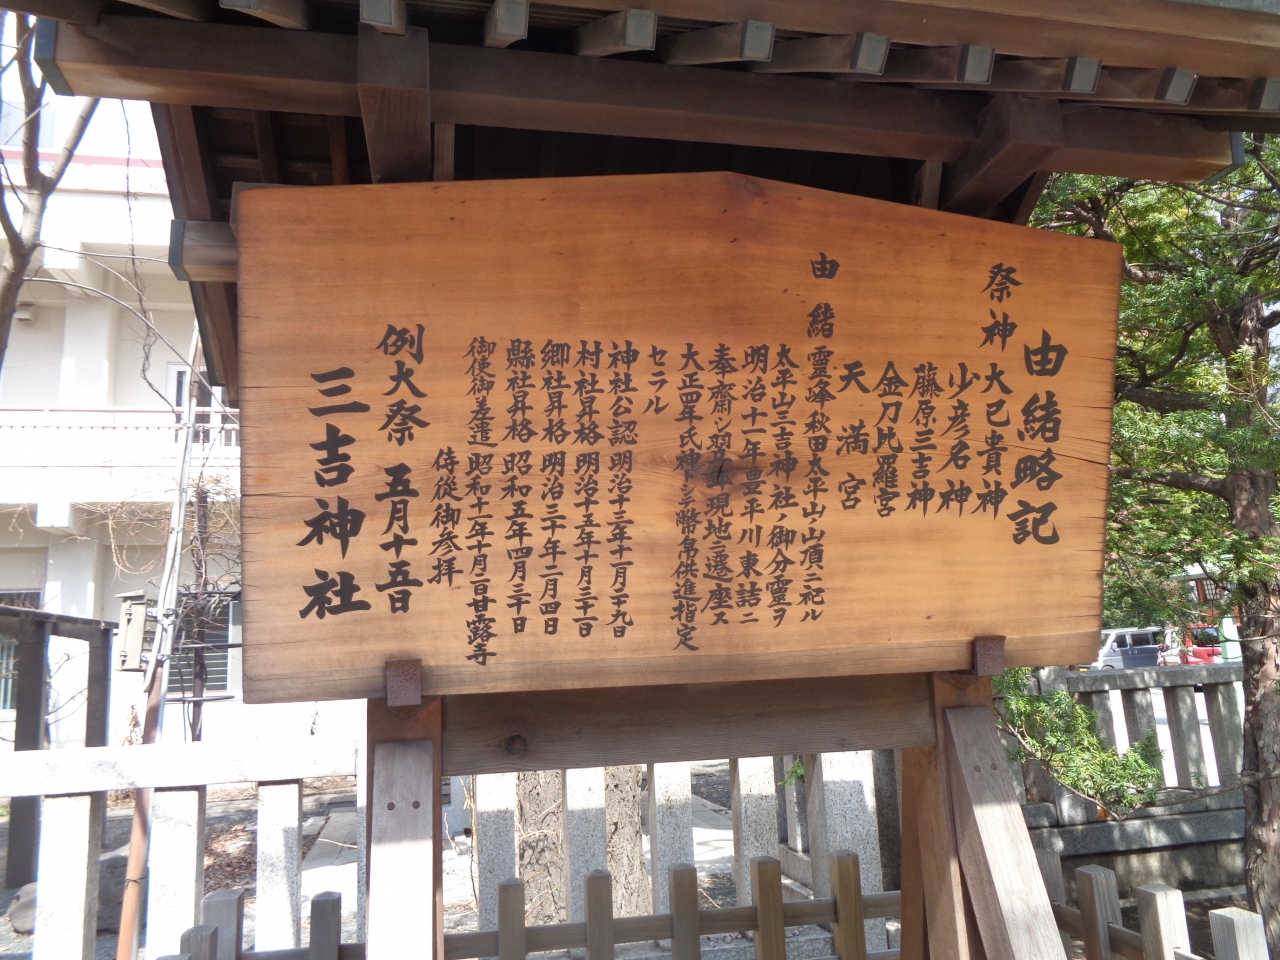 由緒略記
祭神 大己貴神
少彦名神
藤原三吉神
金刀比羅宮
天満宮
由緒 霊峰秋田太平山山頂ニ祀ル
太平山三吉神社ノ御分霊ヲ
明治十一年豊平川東詰ニ
奉齋シ翌年現地ニ遷座ス
大正四年氏神トシ幣帛供進指定
セラル
神社公認 明治十三年十一月二十九日
村社昇格 明治十五年十月三十一日
郷社昇格 明治三十年二月四日
縣社昇格 昭和五年四月三十日
御使御差遣 昭和十一年十月二日甘露寺
侍從御参拝
例大祭 五月十五日
三吉神社